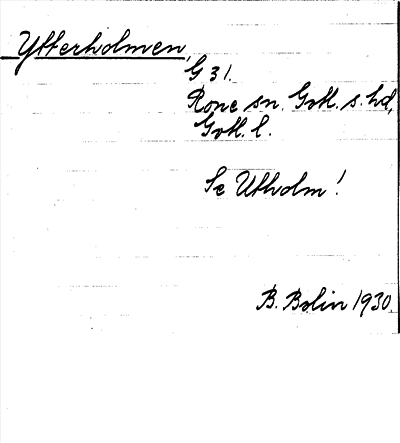 Ytterholmen,
G 31.
Rone sn. Gotl. s. hd,
Gotl. l.
Se Utholm!
B. Bolin 1930.